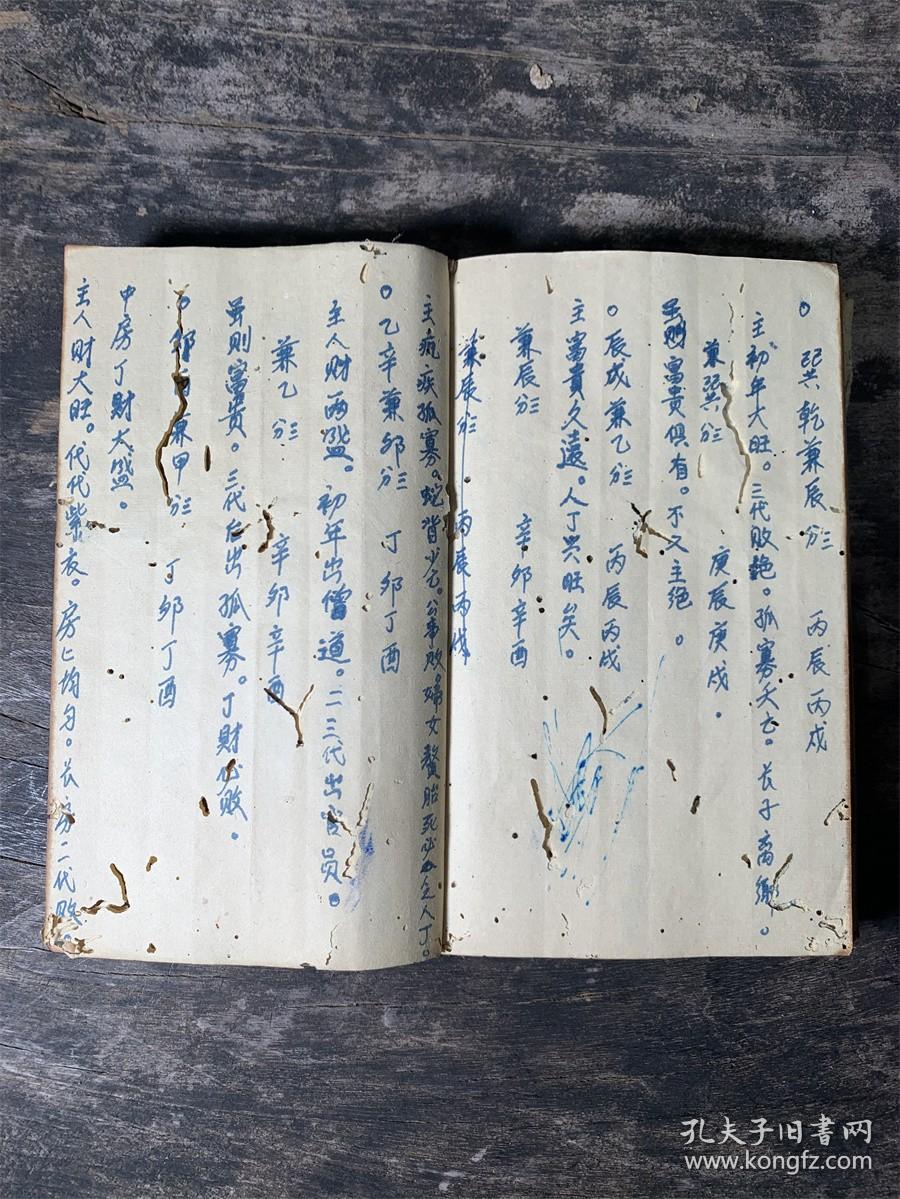 ○ 巽乾兼辰分三 丙辰丙戌
主初年大旺。三代败绝。孤寡夭亡。长子离乡。
兼巽分三 庚辰庚戌。
虽则富贵俱有。不久主绝。
○ 辰戌兼乙分三 丙辰丙戌
主富貴久遠。人丁兴旺矣。
兼辰分三 辛卯辛酉
兼辰分三 丙辰丙戌
主疯疾孤寡。蛇背少亡。公事败。婦女贅胎死必人丁。
○ 乙辛兼卯分三 丁卯丁酉
主人财両盛。初年出僧道。二三代出官员。
兼乙分三 辛卯辛酉
虽则富贵。三代后出孤寡。丁財必败。
○ 卯酉兼甲分三 丁卯丁酉
中房丁財大盛。
主人财大旺。代代紫衣。房匕均匀。长房二代败。
孔夫子旧书网
www.kongfz.com